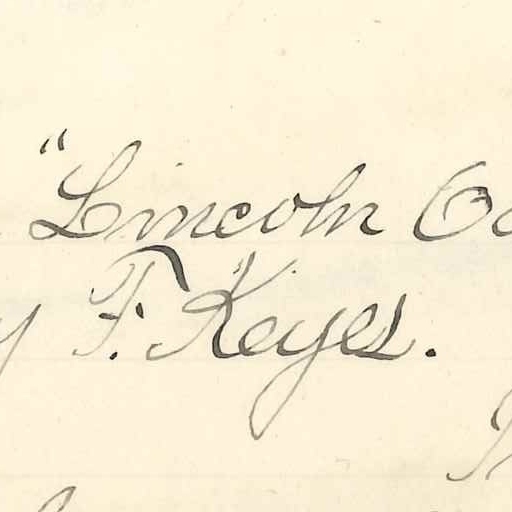 "Lincoln
F. Keyes.